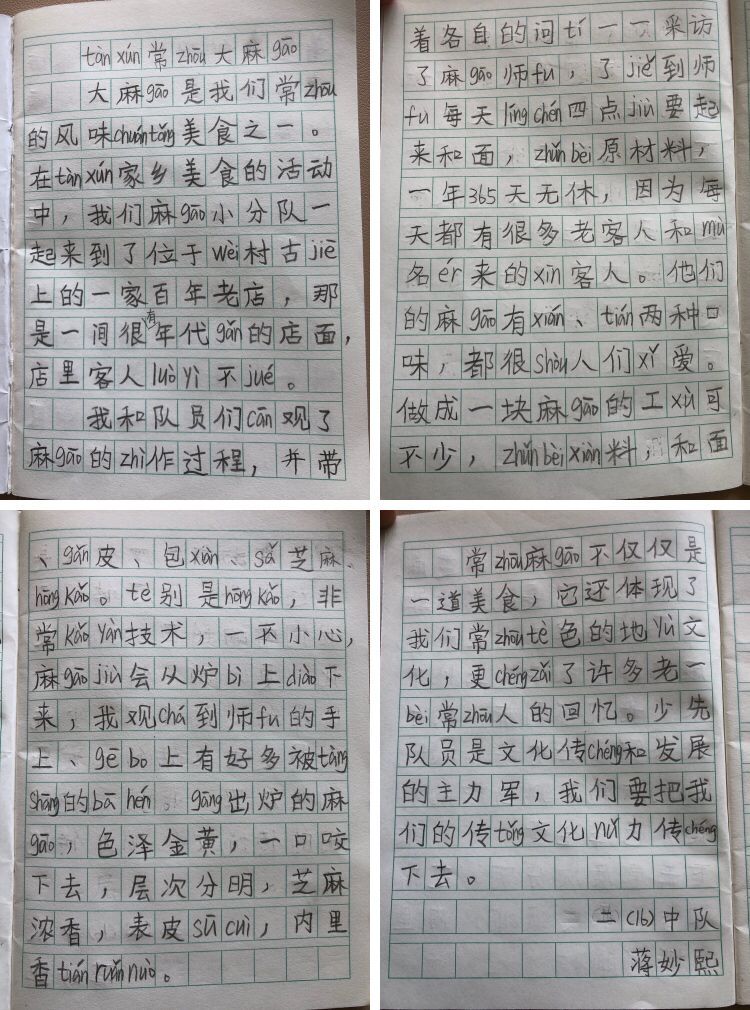 tàn xún常zhōu大麻gāo
大麻gāo是我们常zhōu
的风味chuántǒng美食之一。
在tàn xún家乡美食的活动
中，我们麻gāo小分队一
起来到了位于wèi村古jiē
上的一家百年老店，那
是一间很有年代gǎn的店面，
店里客人luò yì不jué。
我和队员们cān观了
麻gāo的zhì作过程，并带
着各自的问tí一一采访
了麻gāo师fu，了jiě到师
fu每天líng chén四点jiù要起
来和面，zhǔn bèi原材料，
一年365天无休，因为每
天都有很多老客人和mù
名ér来的xīn客人。他们
的麻gāo有xián、tián两种口
味，都很shòu人们xǐ爱。
做成一块麻gāo的工xù可
不少，zhǔn bèi xiàn料，和面
、gǎn皮、包xiàn、sǎ芝麻、
hōng kǎo。tè别是hōng kǎo，非
常kǎo yàn技术，一不小心，
麻gāo jiù会从炉bì上diào下
来，我观chá到师fu的手
上、gē bo上有好多被tàng
shāng的bā hén。gāng出炉的麻
gāo，色泽金黄，一口咬
下去，层次分明，芝麻
浓香，表皮sū cuì，内里
香tián ruǎn nuò。
常zhōu麻gāo不仅仅是
一道美食，它还体现了
我们常zhōu tè色的地yù文
化，更chéng zǎi了许多老一
bèi常zhōu人的回忆。少先
队员是文化传chéng和发展
的主力军，我们要把我
们的传tǒng文化nǔ力传chéng
下去。
二（16）中队
蒋妙熙